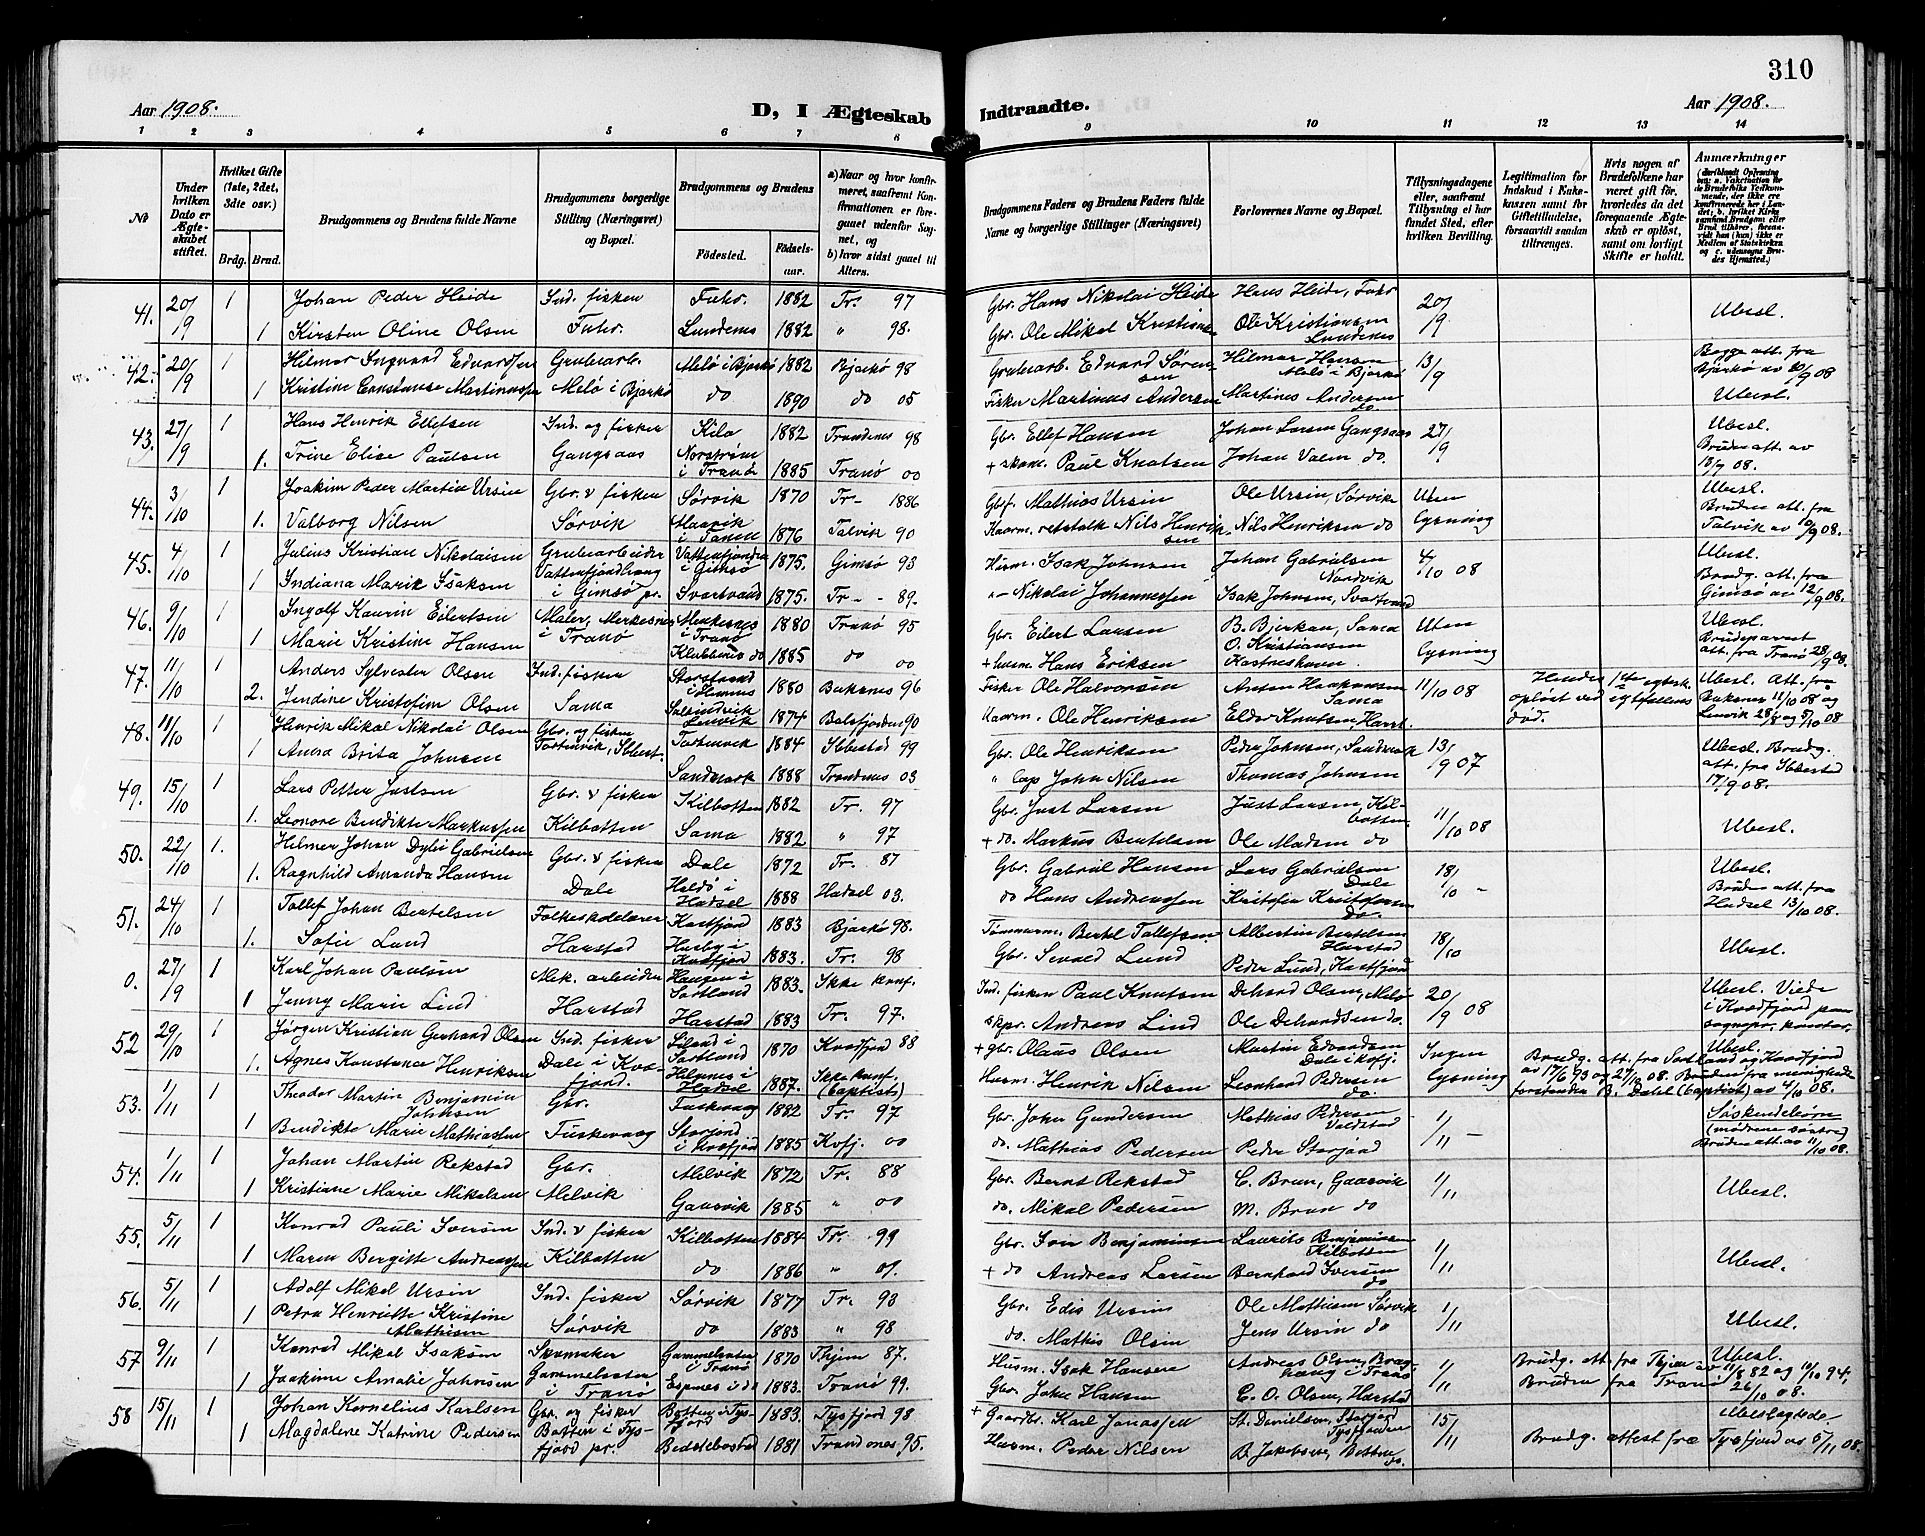 310
Aar 1908.
D, I Ægteskab Indtraadte.
Aar 1908.
1 2 3 4 5 6 7 8 9 10 11 12 13 14
No
Under hvilken Dato er Ægteskabet stiftet.
Hvilket Gifte (1ste, 2det, 3die osv.)
Brdg. Brud.
Brudgommens og Brudens fulde Navne
Brudgommens borgerlige Stilling (Næringsvei) og Bopæl.
Brudgommens og Brudens
Fødested. Fødselsaar.
a) Naar og hvor konfirmeret, saafremt Konfirmationen er foregaaet udenfor Sognet, og b) hvor sidst gaaet til Alters.
Brudgommens Faders og Brudens Faders fulde Navne og borgerlige Stillinger (Næringsvei)
Forlovernes Navne og Bopæl.
Tillysningsdagene eller, saafremt Tillysning ei har fundet Sted, efter hvilken Bevilling.
Legitimation for Indskud i Enkekassen samt for Giftetilladelse, forsaavidt saadan tiltrænges.
Hvis nogen af Brudefolkene har været gift før, hvorledes da det foregaaende Ægteskab er opløst, samt om lovligt Skifte er holdt.
Anmærkninger
41. 20/9 1 Johan Peder Heide Ind. fisker Fuhr. 1882 Tr. 97 Gbr. Hans Nikolai Heide Hans Heide, Fuhr 20/9 Ubesl.
1 Kirsten Oline Olsen Fuhr. Lundenes 1882 " 98. Gbr. Ole Mikal Kristiansen Ole Kristiansen Lundenes
42. 20/9 1 Hilmar Ingvard Edvardsen Grubearb. Melö i Bjarkö 1882 Bjarkö 98 Grubearb. Edvard Sørensen Hilmar Hansen Melö i Bjarkö 13/9 Begge att. fra Bjarkö av 20/9 08
1 Kristine Constanse Martinussen Melö i Bjarkö do 1890 do 05 Fisker Martinus Andersen Martines Andersen do Ubesl.
43. 27/9 1 Hans Henrik Ellefsen Ind. og fisker Kilo 1882 Trondenes 98 Gbr. Ellef Hansen Johan Larsen Gangsaas 27/9 Ubesl.
1. Trine Elise Paulsen Gangsaas Norstrøm i Tranö 1885 Tranö 00 + skom. Paul Knutsen Johan Valm do. Bruden att. av 18/9 08.
44. 3/10 1 Joakim Peder Martin Ursin Gbr. v fisker Sørvik 1870 Tr- 1886 Gbf. Mathias Ursin Ole Ursin, Sørvik Uten lysning Ubesl.
1. Valborg Nilsen Sørvik i Tanen 1876 Talvik 90 Nils Henriksen Nils Henriksen do Bruden att. fra Talvik av 10/9 08.
45. 4/10 1 Julius Kristian Nikolaisen Grubearbeider Vattenfjordra i Gimsö 1875. Gimsö 93 Husm. Isak Johnsen Johan Gabrielsen Nordvik 4/10 08 Ubesl.
1 Indiana Marik Isaksen Vattenfjordhaug i Gimsö pr. Svartvand 1875. Tr- - 89. "- Nikolai Johannessen Isak Johnsen, Svartvand Brudg. att. fra Gimsö av 12/9 08.
46. 9/10 1 Ingolf Kaurin Eilertsen Maler, Merkesnes i Tranö Merkenes i Tranö 1880 Tranö 95 Gbr. Eilert Larsen B. Bjerkan, Sama Uten lysning Ubesl.
1 Marie Kristine Hansen Klubbenes do 1885 do 00 + husm. Hans Eriksen O. Kristiansen Kastneshavn Brudeparet att. fra Tranö 28/9 08.
47. 11/10 1 Anders Sylvester Olsen Ind. fisker Storstrand i Hemnes 1880 Buksnes 96 Fisker Ole Halvorsen Anton Haakonsen Sama 11/10 08 Hendes 1ste egtesk. opløst ved egtefellens död. Ubesl. Att. fra Buksnes 11/10 08 og Lenvik 28/8 og 5/10 08
2. Jendine Kristofine Olsen Sama Lenvik 1874 Balsfjorden 90 Kaarm. Ole Henriksen Eldor Knutsen, Harst.
48. 11/10 1 Henrik Mikal Nikolai Olsen Gbr. og fisker Fortunvik, Ibbest. Fortunvik 1884 Ibbestad 99 Gbr. Ole Henriksen Peder Johnsen, Sandmark 13/9 07 Ubesl. Brudg. att. fra Ibbestad 17/9 08.
1 Anna Brita Johnsen Sandmark 1888 Trondenes 03 " Cap John Nilsen Thomas Johnsen
49. 15/10 1 Lars Petter Justsen Gbr. v fisker Kilbotten 1882 Tr. 97 Gbr. Just Larsen Just Larsen, Kilbotten 11/10 08 Ubesl.
1. Leonore Bendikte Markussen Kilbotten Sama 1882 " 97 + do. Markus Bertelsen Ole Madsen do
50. 22/10 1. Helmer Johan Dylei Gabrielsen Gbr. v fisker Dale 1872 Tr. 87 Gbr. Gabriel Hansen Lars Gabrielsen Dale 18/10 - Ubesl.
1. Ragnhild Amanda Hansen Dale Heldö i Hadsel 1888 Hadsel 03. do Hans Andreassen Kristofer Kristofersen do. Bruden att. fra Hadsel 13/10 08.
51. 24/10 1 Tollef Johan Bertelsen Folkeskolelærer Kastfjord 1883 Bjarkö 98. Tømmerm. Bertel Tollefsen. Albertin Bertelsen Harstad 18/10 Ubesl.
1. Sofie Lund Harstad Husby i Kvæfjord 1883. Tr. 98 Gbr. Sevald Lund Peder Lund, Kastfjord
0. 27/9 1 Karl Johan Paulsen Mek. arbeider Haugen i Sortland 1883. Ikke konf. Ind. fisker Paul Knutsen Dehard Olsen, Melö 20/9 08 Ubesl. Viede i Kvæfjord paa sognepr. kontor.
1 Jenny Marie Lind Harstad Harstad 1883 Tr. 97. Skpr. Andreas Lind Ole Dehardsen do.
52 29/10 1 Jørgen Kristian Gerhard Olsen Ind. fisker i Sortland 1870 Kvæfjord 88 + gbr. Olaus Olsen Martin Edvardsen Dale i Kvfj. Ingen lysning Brudg. att. fra Sortland og Kvæfjord av 17/6 93 og 27/10 08. Bruden fra menighedsforstander B. Dahl (baptist) av 4/10 08. Ubesl.
1. Agnes Konstance Henriksen Dale i Kvæfjord. Helgenes i Hadsel 1887. Ikke konf. (baptist) Husm. Henrik Nilsen Leonhard Pedersen do.
53. 1/11 1 Theodor Martin Benjamin Johnsen Gbr. Fuskevaag 1882 Tr. 97 Gbr. John Gundersen Mathias Pedersen Voldstad 1/11 - Søskendebörn (mødrene søstre) Bruden att. av 11/10 08.
1 Bendikte Marie Mathiassen Fuskevaag Storjord i Kvæfjord 1885 Kvfj. 00 do. Mathias Pedersen Peder Storjord
54. 1/11 1 Johan Martin Rekstad Gbr. Melvik 1872 Tr. 88 Gbr. Bernt Rekstad C. Brun, Gaasvik 1/11 Ubesl.
1 Kristiane Marie Mikalsen Melvik Gaasvik 1885 " 00 do. Mikal Pedersen M. Brun do
55. 5/11 1 Konrad Pauli Iversen Ind. v fisker Kilbotten 1884 Tr. 99 Gbr. Iver Benjaminsen Laurits Benjaminsen Kilbotten 1/11 Ubesl.
1 Maren Bergitte Andreassen Kilbotten do 1886 " 01. + do Andreas Larsen Bernhard Iversen do
56. 5/11 1 Adolf Mikal Ursin Ind. fisker Sørvik 1877 Tr. 93 Gbr. Edis Ursin Ole Mathisen Sørvik 1/11 Ubesl.
1 Petra Henriette Kristine Mathisen Sørvik do 1883 " 98 do. Mathis Olsin Jens Ursin do
57 9/11 1 Konrad Mikal Isaksen Skomaker Gammelsæter i Tranö 1870 Thjem 87. Husm. Isak Hansen Andreas Olsen, Braghaug i Tranö 1/11 Brudg. att. fra Thjem av 11/8 82 og 10/10 94, Ubesl.
1 Joakime Amalie Johnsen Gammelsæter i Tranö Espnes i do 1883. Tranö 99. Gbr. John Hansen C. O. Olsen, Harstad Bruden fra Tranö 26/10 08.
58 15/11 1 Johan Kornelius Karlsen Gbr. og fisker Botten i Tysfjord 1883. Tysfjord 98 + Gaardbr. Karl Jonassen St. Danielsen, Storjord Tysfjorden 15/11 Ubeslægtede-
1 Magdalene Katrine Pedersen Botten i Tysfjord pr. Beddebostad 1881 Trondenes. 95. Husm. Peder Nilsen B. Jakobsen, Botten do. Brudg. attest fra Tysfjord av 5/11 08.